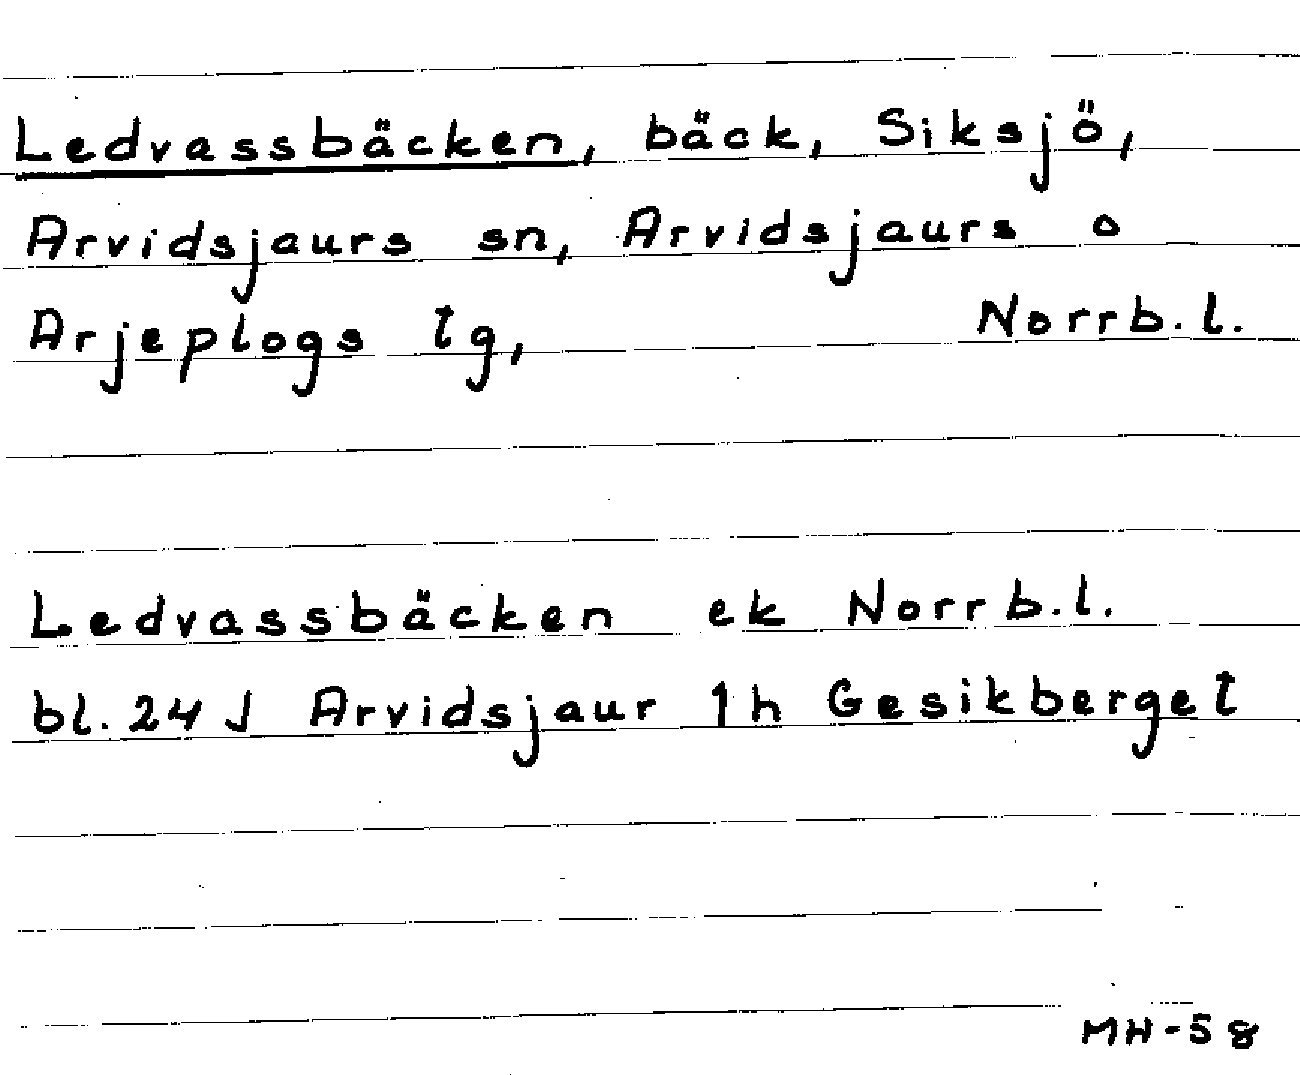 Ledvassbäcken, bäck, Siksjö,
Arvidsjaurs sn, Arvidsjaurs o
Arjeplogs tg, Norrb.l.
Ledvassbäcken ek Norrb.l.
bl. 24 J Arvidsjaur 1h Gesikberget
MH-58